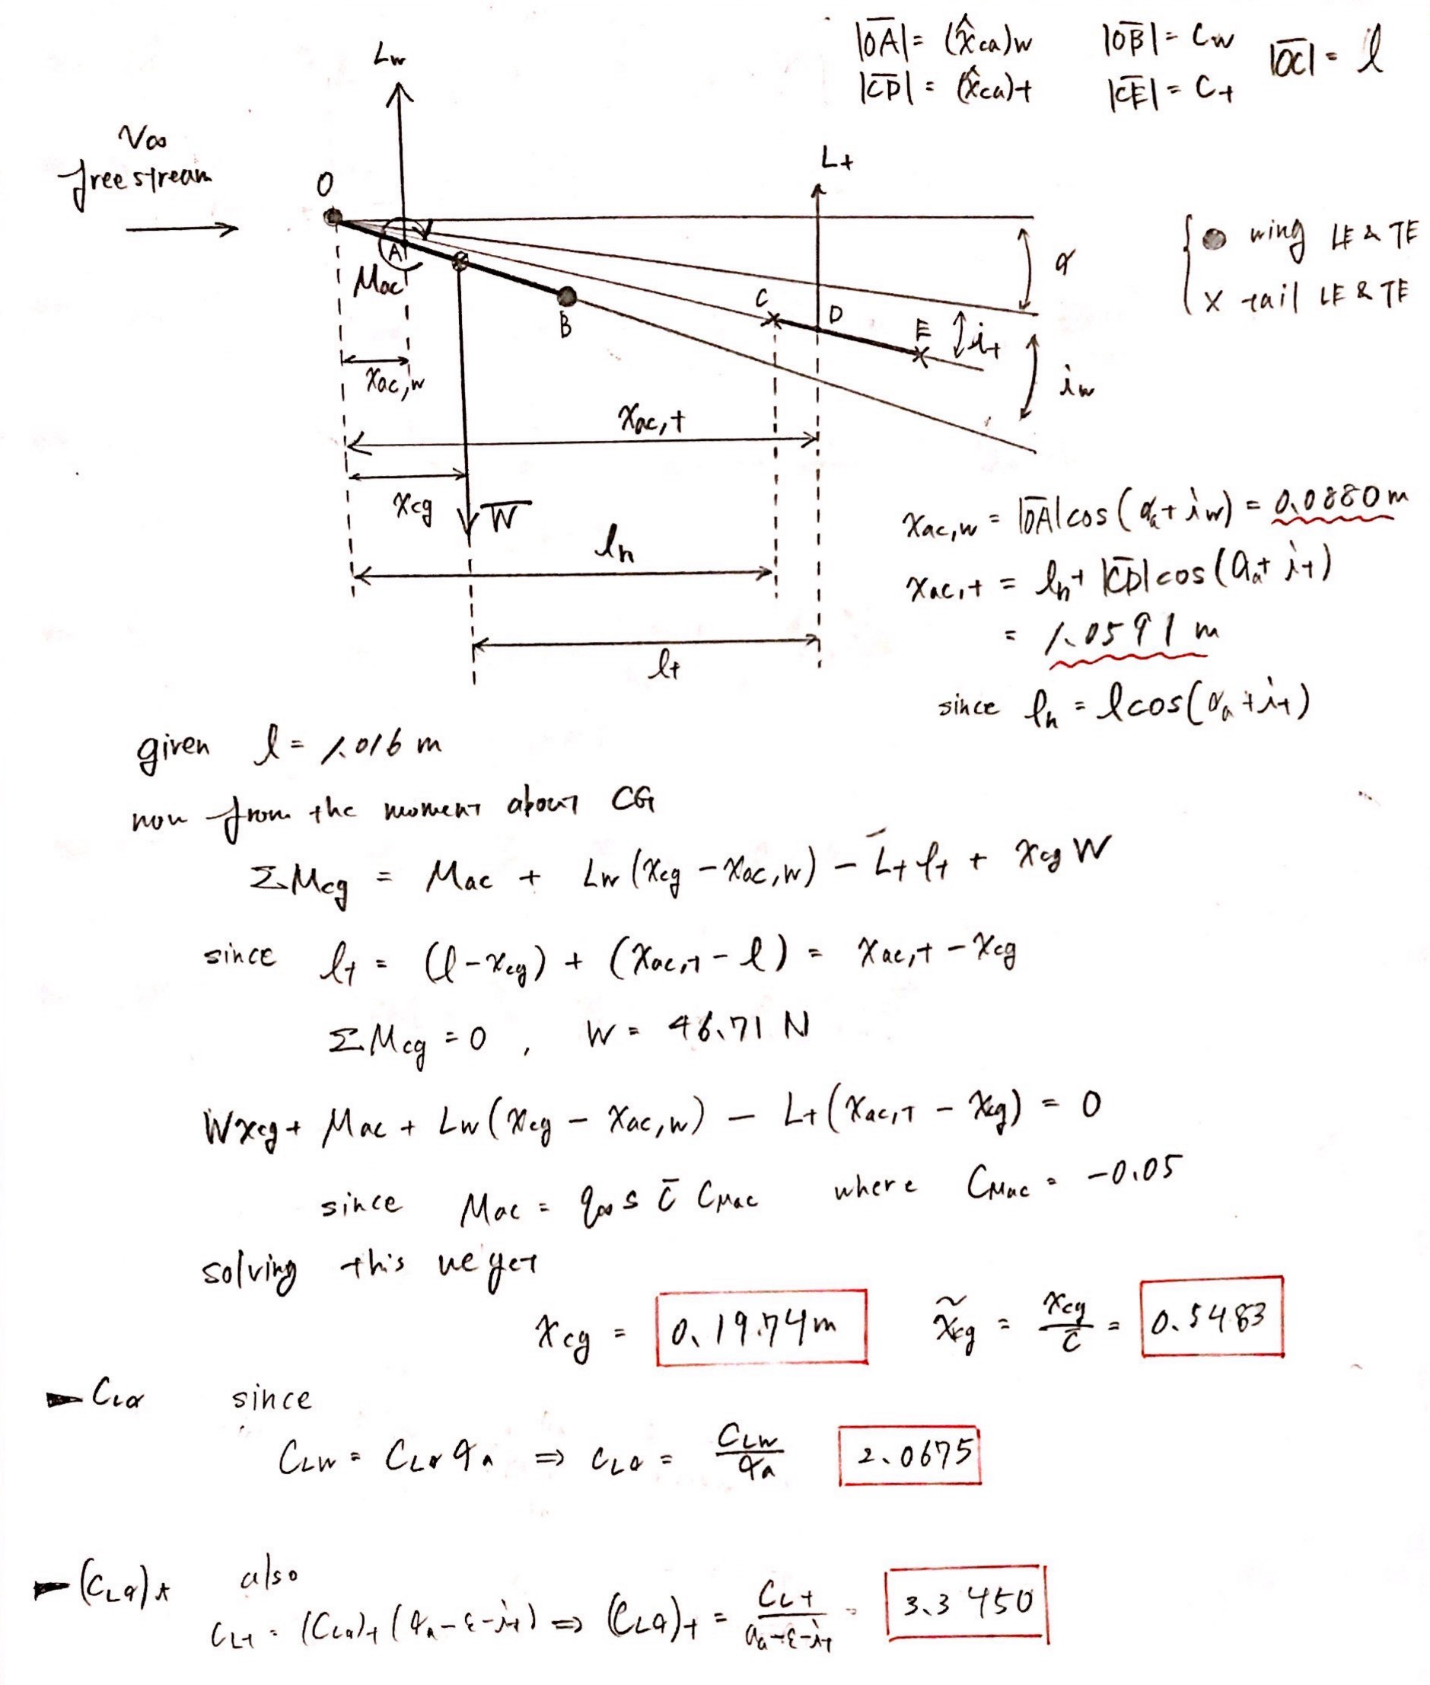 |OA| = (x̂ca)w |OB| = Cw |OC| = l
|CD| = (x̂ca)t |CE| = Ct
Lw
V∞
free stream
O
Lt
A
Mac
B
C
D
E
α
it
iw
● wing LE & TE
x tail LE & TE
xac,w
xac,t
xcg
W
lh
lt
xac,w = |OA| cos(αa + iw) = 0.0880 m
xac,t = lh + |CD| cos(αa + it)
= 1.0591 m
since lh = l cos(αa + it)
given l = 1.016 m
now from the moment about CG
ΣMcg = Mac + Lw(xcg - xac,w) - Lt lt + xcg W
since lt = (l - xcg) + (xac,t - l) = xac,t - xcg
ΣMcg = 0 , W = 46.71 N
Wxcg + Mac + Lw(xcg - xac,w) - Lt(xac,t - xcg) = 0
since Mac = q∞ S c̄ CMac where CMac = -0.05
solving this we get
xcg = 0.1974 m x̃cg = xcg/c̄ = 0.5483
CLα since
CLw = CLα αa ⇒ CLα = CLw/αa 2.0675
(CLα)t also
CLt = (CLα)t (αa - ε - it) ⇒ (CLα)t = CLt/(αa - ε - it) = 3.3450